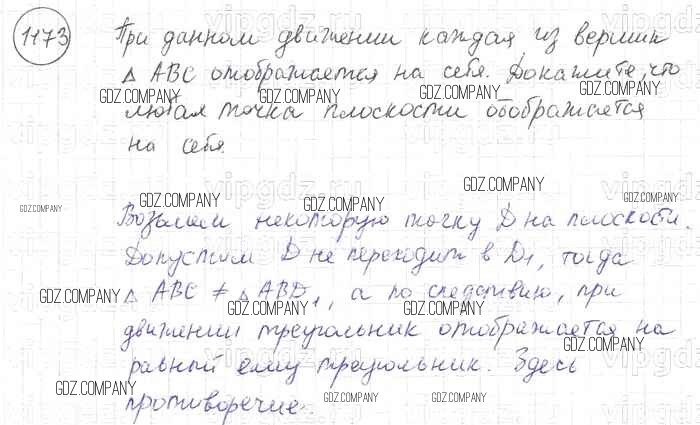 1173
При данном движении каждая из вершин
△ ABC отображается на себя. Докажите, что
GDZ.COMPANY GDZ.COMPANY GDZ.COMPANY GDZ.COMPANY
любая точка плоскости отображается
на себя.
GDZ.COMPANY GDZ.COMPANY GDZ.COMPANY GDZ.COMPANY GDZ.COMPANY
Возьмем некоторую точку D на плоскости.
Допустим D не переходит в D₁, тогда
△ ABC ≠ △ ABD₁, а по следствию, при
GDZ.COMPANY GDZ.COMPANY GDZ.COMPANY GDZ.COMPANY
движении треугольник отображается на
равный ему треугольник. Здесь
GDZ.COMPANY
противоречие.
GDZ.COMPANY GDZ.COMPANY GDZ.COMPANY